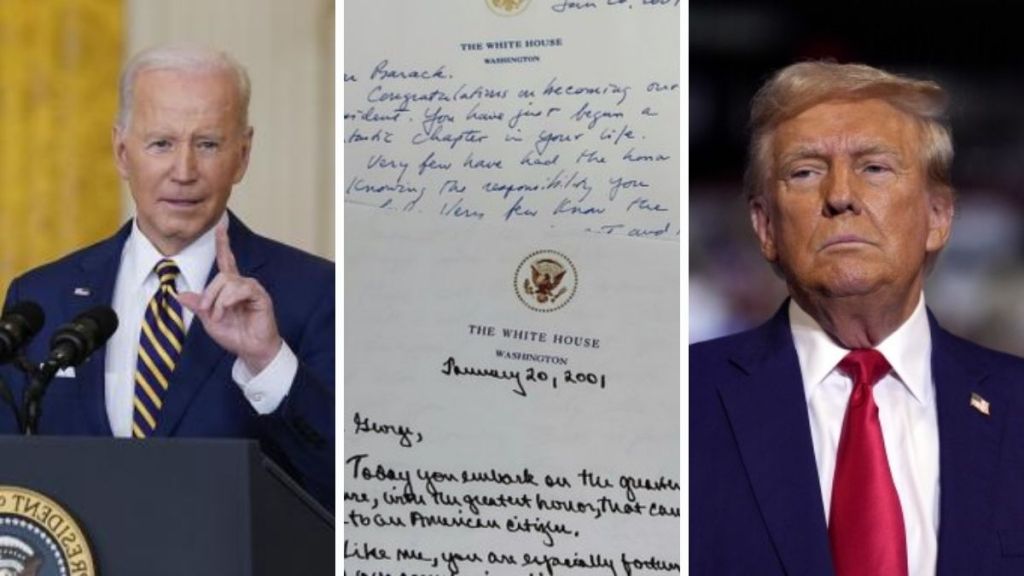 Jan 20, 2009
THE WHITE HOUSE
WASHINGTON
Barack.
Congratulations on becoming our
ident. You have just begun a
tastic chapter in your life.
Very few have had the honor
Knowing the responsibility you
Very few know the
and
THE WHITE HOUSE
WASHINGTON
January 20, 2001
George,
Today you embark on the greatest
re, with the greatest honor, that can
to an American citizen.
Like me, you are especially fortun
PRESIDENT O